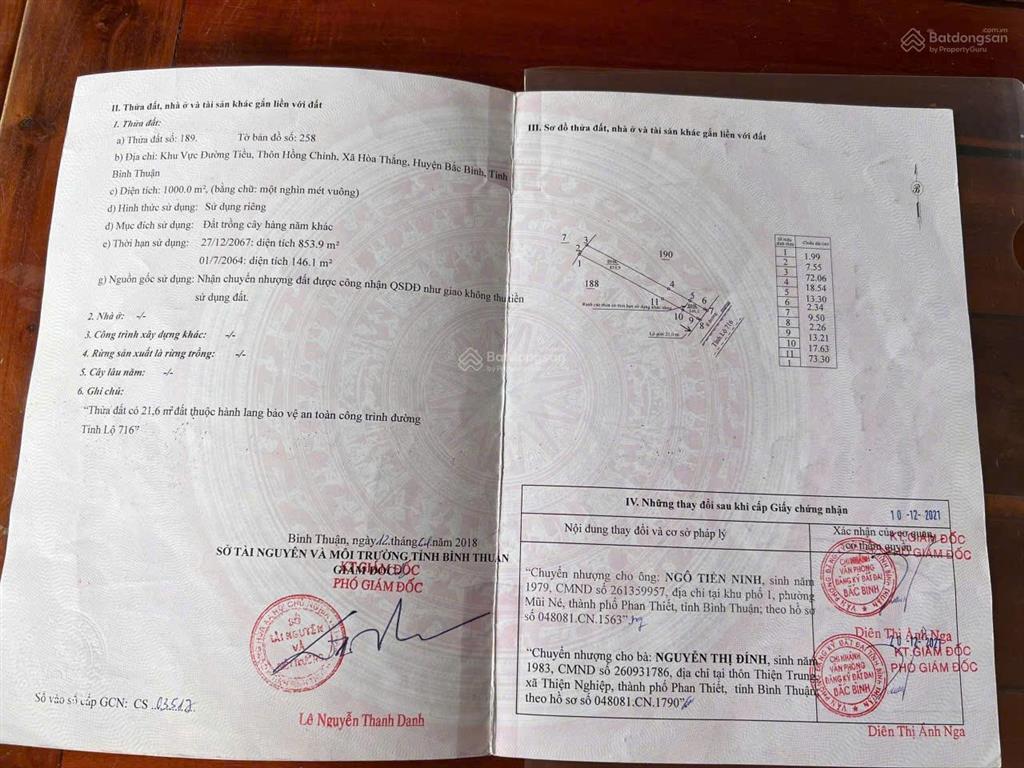 Batdongsan.com.vn
by PropertyGuru
II. Thửa đất, nhà ở và tài sản khác gắn liền với đất
1. Thửa đất:
a) Thửa đất số: 189. Tờ bản đồ số: 258
b) Địa chỉ: Khu Vực Đường Tiểu, Thôn Hồng Chính, Xã Hòa Thắng, Huyện Bắc Bình, Tỉnh
Bình Thuận
c) Diện tích: 1000.0 m², (bằng chữ: một nghìn mét vuông)
d) Hình thức sử dụng: Sử dụng riêng
đ) Mục đích sử dụng: Đất trồng cây hàng năm khác
e) Thời hạn sử dụng: 27/12/2067: diện tích 853.9 m²
01/7/2064: diện tích 146.1 m²
g) Nguồn gốc sử dụng: Nhận chuyển nhượng đất được công nhận QSDĐ như giao không thu tiền
sử dụng đất.
2. Nhà ở: -/-
3. Công trình xây dựng khác: -/-
4. Rừng sản xuất là rừng trồng: -/-
5. Cây lâu năm: -/-
6. Ghi chú:
"Thửa đất có 21,6 m² đất thuộc hành lang bảo vệ an toàn công trình đường
Tỉnh Lộ 716"
Bình Thuận, ngày 12 tháng 01 năm 2018
SỞ TÀI NGUYÊN VÀ MÔI TRƯỜNG TỈNH BÌNH THUẬN
GIÁM ĐỐC
KT.GIÁM ĐỐC
PHÓ GIÁM ĐỐC
SỞ
TÀI NGUYÊN
VÀ
MÔI TRƯỜNG
Lê Nguyễn Thanh Danh
Số vào sổ cấp GCN: CS 03517
Batdongsan
by PropertyGuru
III. Sơ đồ thửa đất, nhà ở và tài sản khác gắn liền với đất
B
7
190
188
1
2
3
4
5
6
7
8
9
10
11
Lộ giới 21,0 m
Tỉnh Lộ 716
Số hiệu đỉnh thửa
Chiều dài (m)
1
1.99
2
7.55
3
72.06
4
18.54
5
13.30
6
2.34
7
9.50
8
2.26
9
13.21
10
17.63
11
73.30
1
IV. Những thay đổi sau khi cấp Giấy chứng nhận
Nội dung thay đổi và cơ sở pháp lý
Xác nhận của cơ quan
có thẩm quyền
10 -12- 2021
KT.GIÁM ĐỐC
PHÓ GIÁM ĐỐC
"Chuyển nhượng cho ông: NGÔ TIẾN NINH, sinh năm
1979, CMND số 261359957, địa chỉ tại khu phố 1, phường
Mũi Né, thành phố Phan Thiết, tỉnh Bình Thuận; theo hồ sơ
số 048081.CN.1563"
CHI NHÁNH
VĂN PHÒNG
ĐĂNG KÝ ĐẤT ĐAI
BẮC BÌNH
Diên Thị Ánh Nga
20 -12- 2021
KT.GIÁM ĐỐC
PHÓ GIÁM ĐỐC
"Chuyển nhượng cho bà: NGUYỄN THỊ ĐÍNH, sinh năm
1983, CMND số 260931786, địa chỉ tại thôn Thiện Trung,
xã Thiện Nghiệp, thành phố Phan Thiết, tỉnh Bình Thuận;
theo hồ sơ số 048081.CN.1790"
CHI NHÁNH
VĂN PHÒNG
ĐĂNG KÝ ĐẤT ĐAI
BẮC BÌNH
Diên Thị Ánh Nga